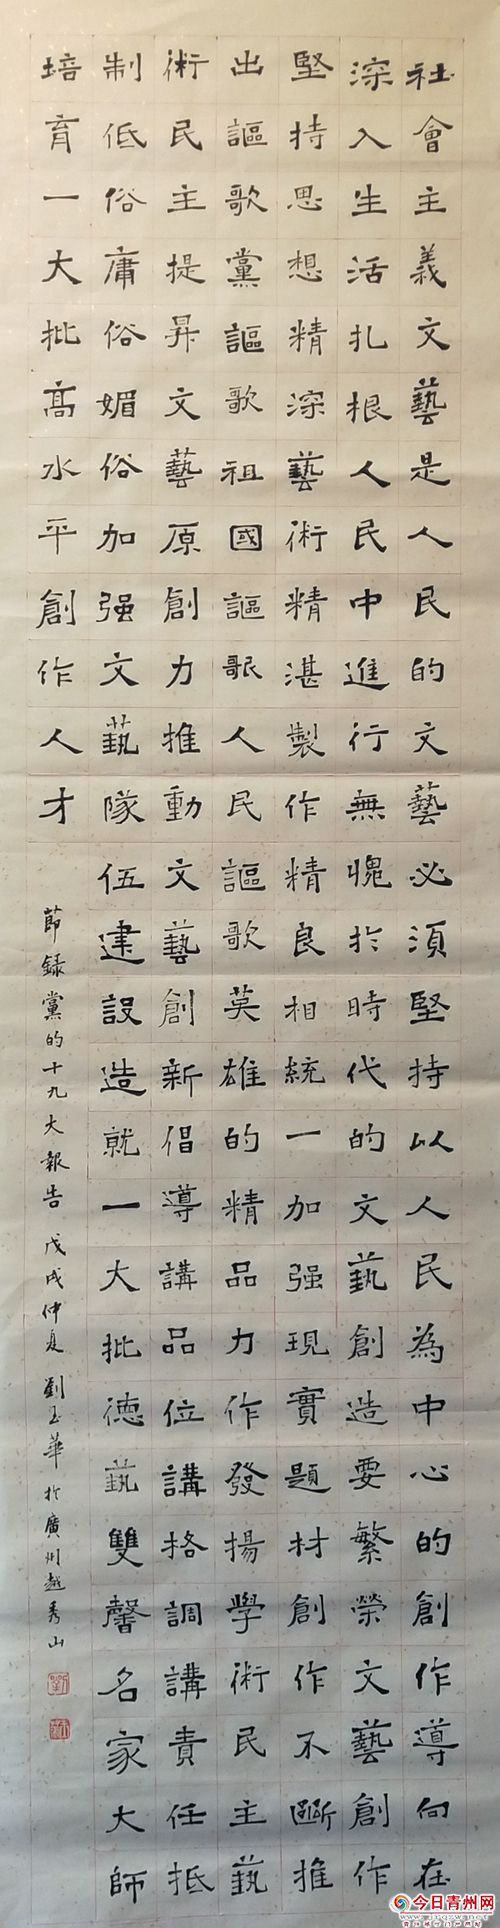 社會主義文藝是人民的文藝必須堅持以人民為中心的創作導向在
深入生活扎根人民中進行無愧於時代的文藝創造要繁榮文藝創作
堅持思想精深藝術精湛製作精良相統一加强現實題材創作不斷推
出謳歌黨謳歌祖國謳歌人民謳歌英雄的精品力作發揚學術民主藝
術民主提昇文藝原創力推動文藝創新倡導講品位講格調講責任抵
制低俗庸俗媚俗加强文藝隊伍建設造就一大批德藝雙馨名家大師
培育一大批高水平創作人才
節録黨的十九大報告 戊戌仲夏 劉玉華於廣州越秀山
今日青州网